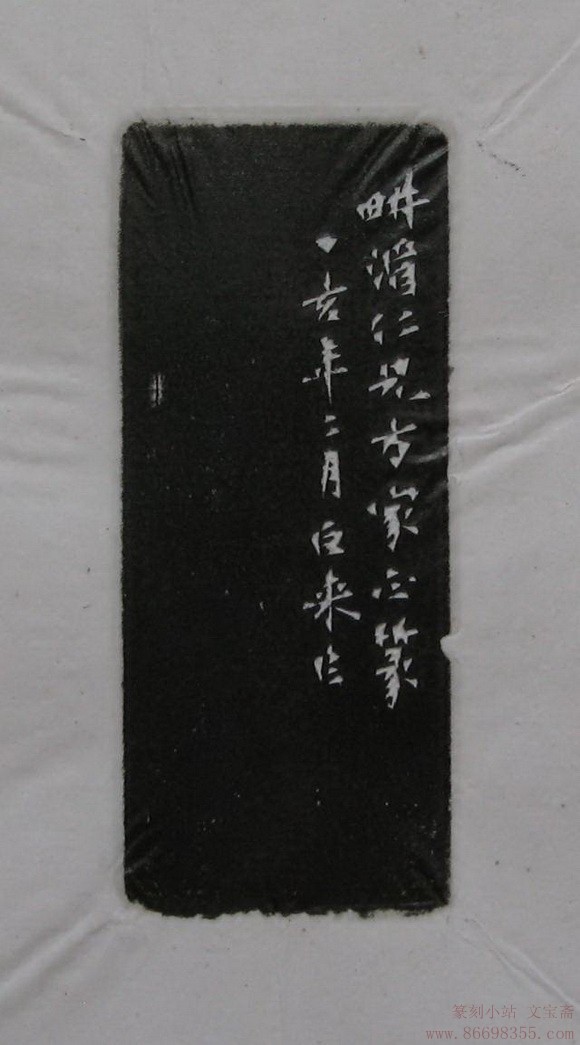 畊湄仁兄方家正篆
丁亥年二月白来作
篆刻小站 文宝斋
www.86698355.com